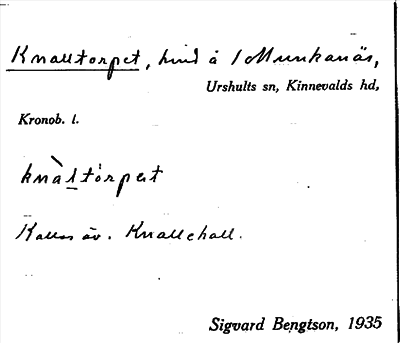 Knalltorpet, hmd å 1 Munkanäs,
Urshults sn, Kinnevalds hd,
Kronob. l.
knàltórpet
Kallas äv. Knallehall.
Sigvard Bengtson, 1935